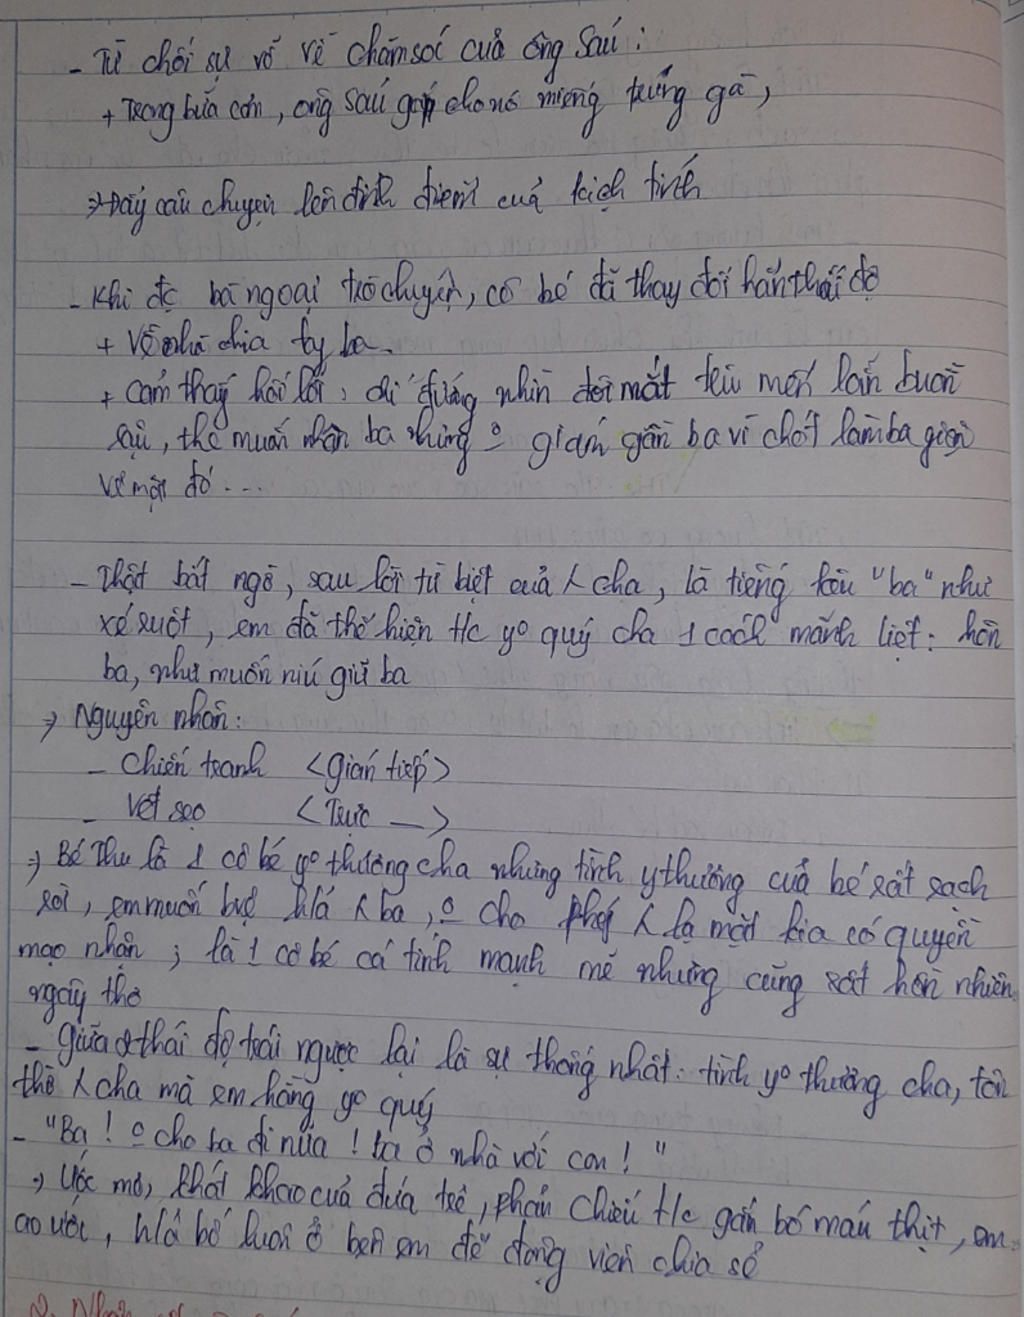 - Từ chối sự vỗ về chăm sóc của ông Sáu :
+ Trong bữa cơm, ông Sáu gắp cho nó miếng trứng gà,
=> Đẩy câu chuyện lên đỉnh điểm của kịch tính
- Khi đc bà ngoại trò chuyện, cô bé đã thay đổi hẳn thái độ
+ Về nhà chia tay ba.
+ Cảm thấy hối lỗi, chỉ đứng nhìn đôi mắt trìu mến lẫn buồn
rầu, thế muốn nhận ba nhưng o gian gần ba vì chót làm ba giận
về mặt đó ...
- Thật bất ngờ, sau lời từ biệt của cha, là tiếng kêu "ba" như
xé ruột, em đã thể hiện t/c yo quý cha 1 cách mãnh liệt : hôn
ba, như muốn níu giữ ba
=> Nguyên nhân :
- Chiến tranh <gián tiếp>
- Vết sẹo <Trực __>
=> Bé Thu là 1 cô bé yo thương cha nhưng tình ythương của bé rất rạch
ròi, em muốn h/á ba, o cho phép lạ mặt kia có quyền
mạo nhận ; là 1 cô bé cá tính mạnh mẽ nhưng cũng rất hồn nhiên
ngây thơ
- Giữa 2 thái độ trái ngược lại là sự thống nhất : tình yo thương cha, tôn
thờ cha mà em hằng yo quý
- "Ba ! o cho ba đi nữa ! ba ở nhà với con ! "
=> Ước mơ, khát khao của đứa trẻ, phản chiếu t/c gắn bó máu thịt, em
ao ước, h/á bố luôn ở bên em để động viên chia sẻ